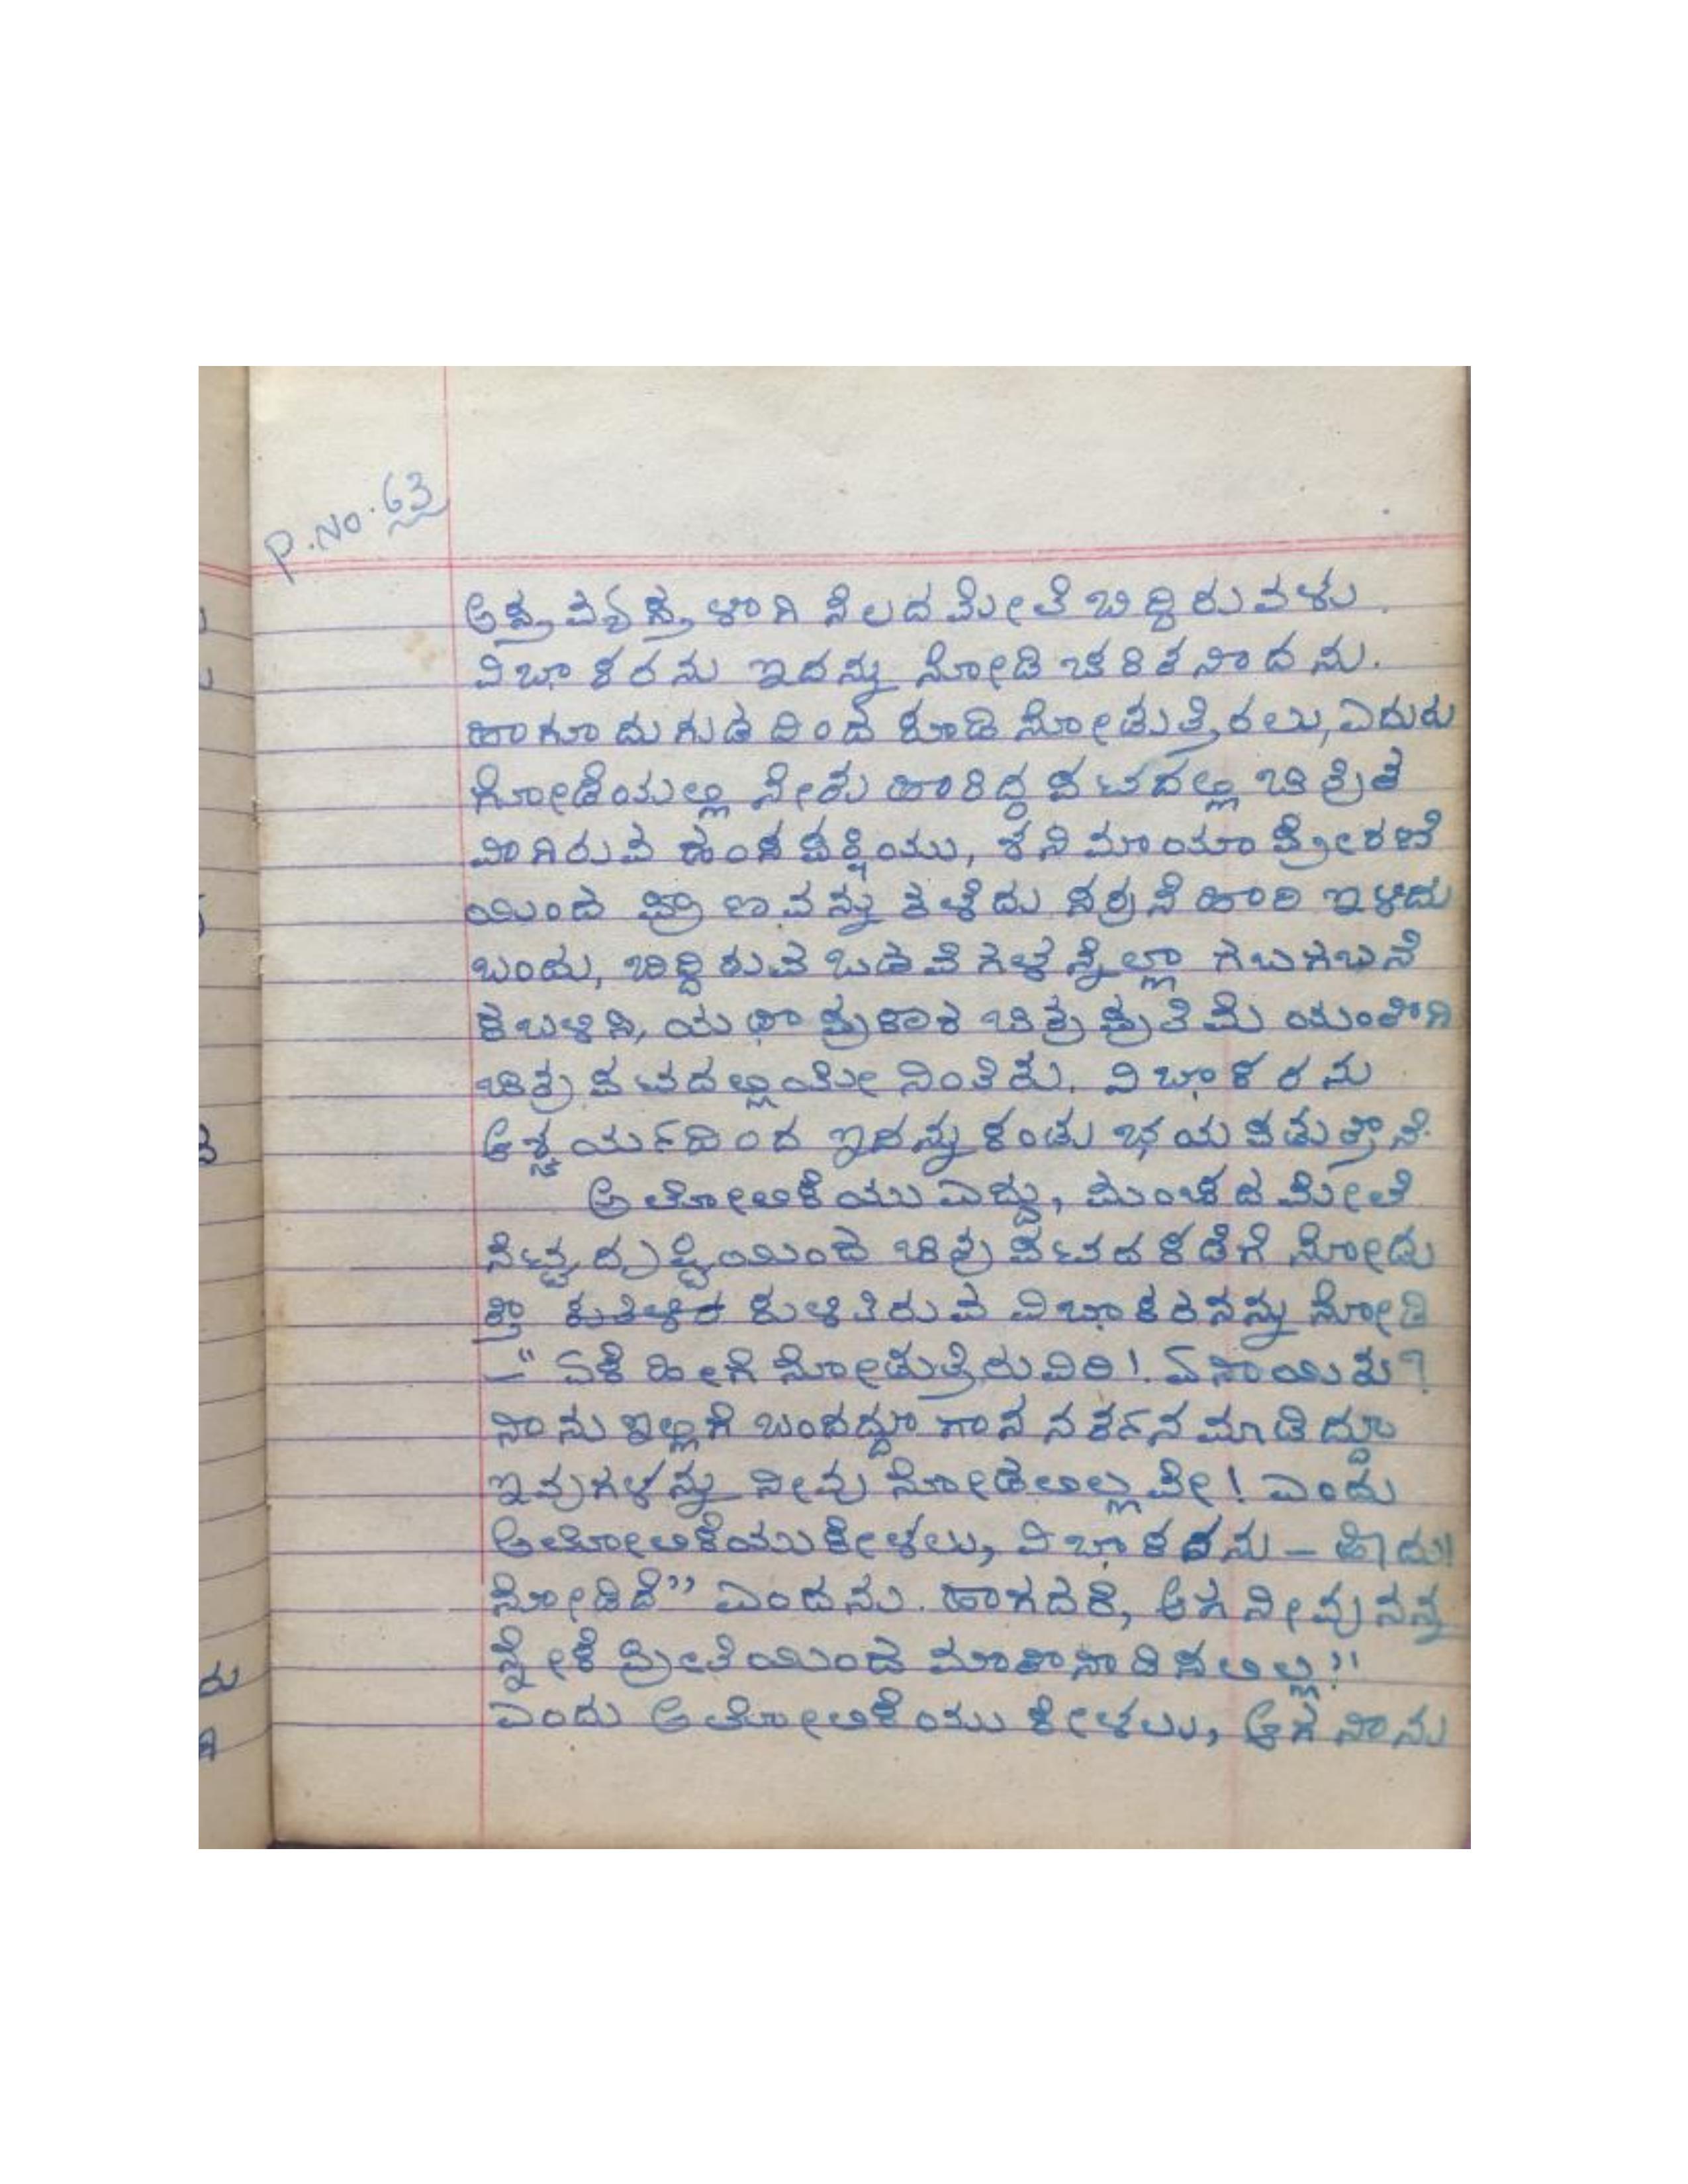 P.No. 63
ಅಸ್ತ್ರವ್ಯಸ್ತ್ರಳಾಗಿ ನೆಲದ ಮೇಲೆ ಬಿದ್ದಿರುವಳು.
ವಿಭಾಕರನು ಇದನ್ನು ನೋಡಿ ಚಕಿತನಾದನು.
ಹಾಗೂ ದುಗುಡದಿಂದ ಕೂಡಿ ನೋಡುತ್ತಿರಲು, ಎದುರು
ಗೋಡೆಯಲ್ಲಿ ನೇತು ಹಾಕಿದ್ದ ಪಟದಲ್ಲಿ ಚಿತ್ರಿತ
ವಾಗಿರುವ ಹಂಸ ಪಕ್ಷಿಯು, ಶನಿ ಮಾಯಾ ಪ್ರೇರಣೆ
ಯಿಂದ ಪ್ರಾಣವನ್ನು ತಳೆದು ಸರ್ರನೆ ಹಾರಿ ಇಳಿದು
ಬಂದು, ಬಿದ್ದಿರುವ ಒಡವೆಗಳನ್ನೆಲ್ಲಾ ಗಬಗಬನೆ
ಕಬಳಿಸಿ, ಯಥಾ ಪ್ರಕಾರ ಚಿತ್ರ ಪ್ರತಿಮೆ ಯಂತಾಗಿ
ಚಿತ್ರ ಪಟದಲ್ಲಿಯೇ ನಿಂತಿತು. ವಿಭಾಕರನು
ಆಶ್ಚರ್ಯದಿಂದ ಇದನ್ನು ಕಂಡು ಭಯ ಪಡುತ್ತಾನೆ.
ಅಲೋಲಿಕೆಯು ಎದ್ದು, ಮಂಚದ ಮೇಲೆ
ನೆಟ್ಟ ದೃಷ್ಟಿಯಿಂದ ಚಿತ್ರ ಪಟದ ಕಡೆಗೆ ನೋಡು
ತ್ತಾ ಕುಳಿತಿರುವ ವಿಭಾಕರನನ್ನು ನೋಡಿ
–" ಏಕೆ ಹೀಗೆ ನೋಡುತ್ತಿರುವಿರಿ! ಏನಾಯಿತು?
ನಾನು ಇಲ್ಲಿಗೆ ಬಂದದ್ದೂ ಗಾನ ನರ್ತನ ಮಾಡಿದ್ದೂ
ಇವುಗಳನ್ನು ನೀವು ನೋಡಲಿಲ್ಲವೇ! ಎಂದು
ಅಲೋಲಿಕೆಯು ಕೇಳಲು, ವಿಭಾಕರನು – ಹೌದು!
ನೋಡಿದೆ" ಎಂದನು. ಹಾಗದರೆ, ಆಗ ನೀವು ನನ್ನ
ನ್ನೇಕೆ ಪ್ರೀತಿಯಿಂದ ಮಾತಾನಾಡಿಸಲಿಲ್ಲ?"
ಎಂದು ಅಲೋಲಿಕೆಯು ಕೇಳಲು, ಆಗ ನಾನು